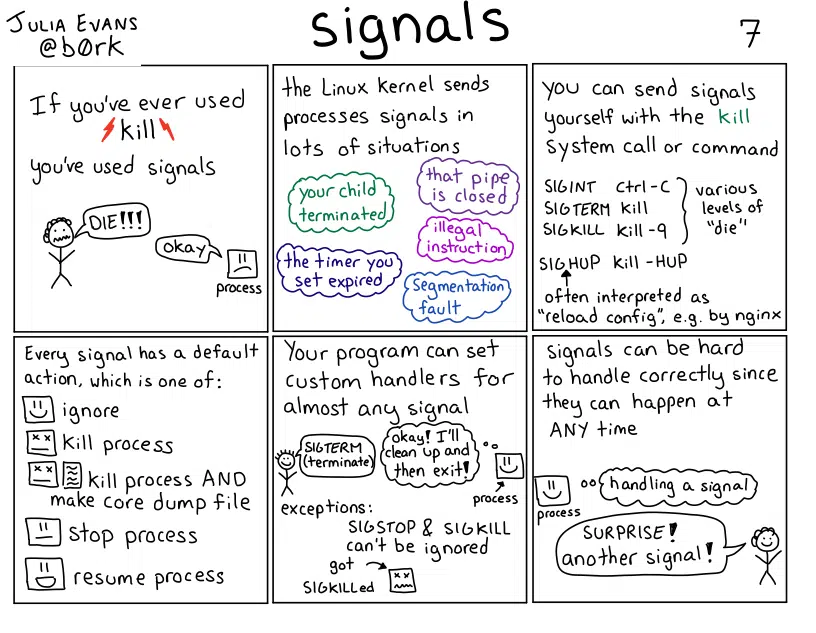 JULIA EVANS
@b0rk
signals
7
If you've ever used
kill
you've used signals
DIE!!!
okay
process
the Linux kernel sends
processes signals in
lots of situations
your child
terminated
that pipe
is closed
illegal
instruction
the timer you
set expired
Segmentation
fault
you can send signals
yourself with the kill
system call or command
SIGINT ctrl-C
SIGTERM kill
SIGKILL kill -9
various
levels of
"die"
SIGHUP kill -HUP
often interpreted as
"reload config", e.g. by nginx
Every signal has a default
action, which is one of:
ignore
kill process
kill process AND
make core dump file
stop process
resume process
Your program can set
custom handlers for
almost any signal
SIGTERM
(terminate)
okay! I'll
clean up and
then exit!
process
exceptions:
SIGSTOP & SIGKILL
can't be ignored
got
SIGKILLed
signals can be hard
to handle correctly since
they can happen at
ANY time
process
handling a signal
SURPRISE!
another signal!